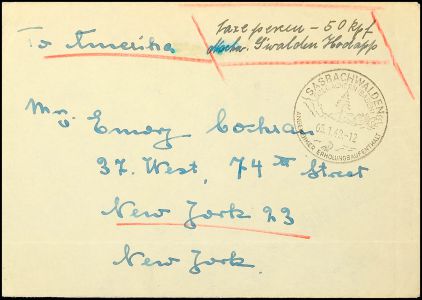 To Amerika
taxe percue - 50 Rpf
S'walden Hodapp
SASBACHWALDEN
ANGENEHMER ERHOLUNGSAUFENTHALT
Mr. Emery Cochran
37. West, 74th Street
New York 23
New York.